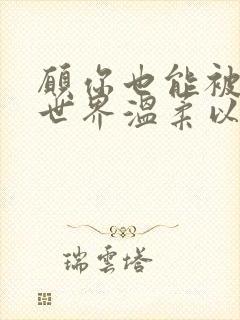 願你也能被
世界溫柔以
瑞雲塔